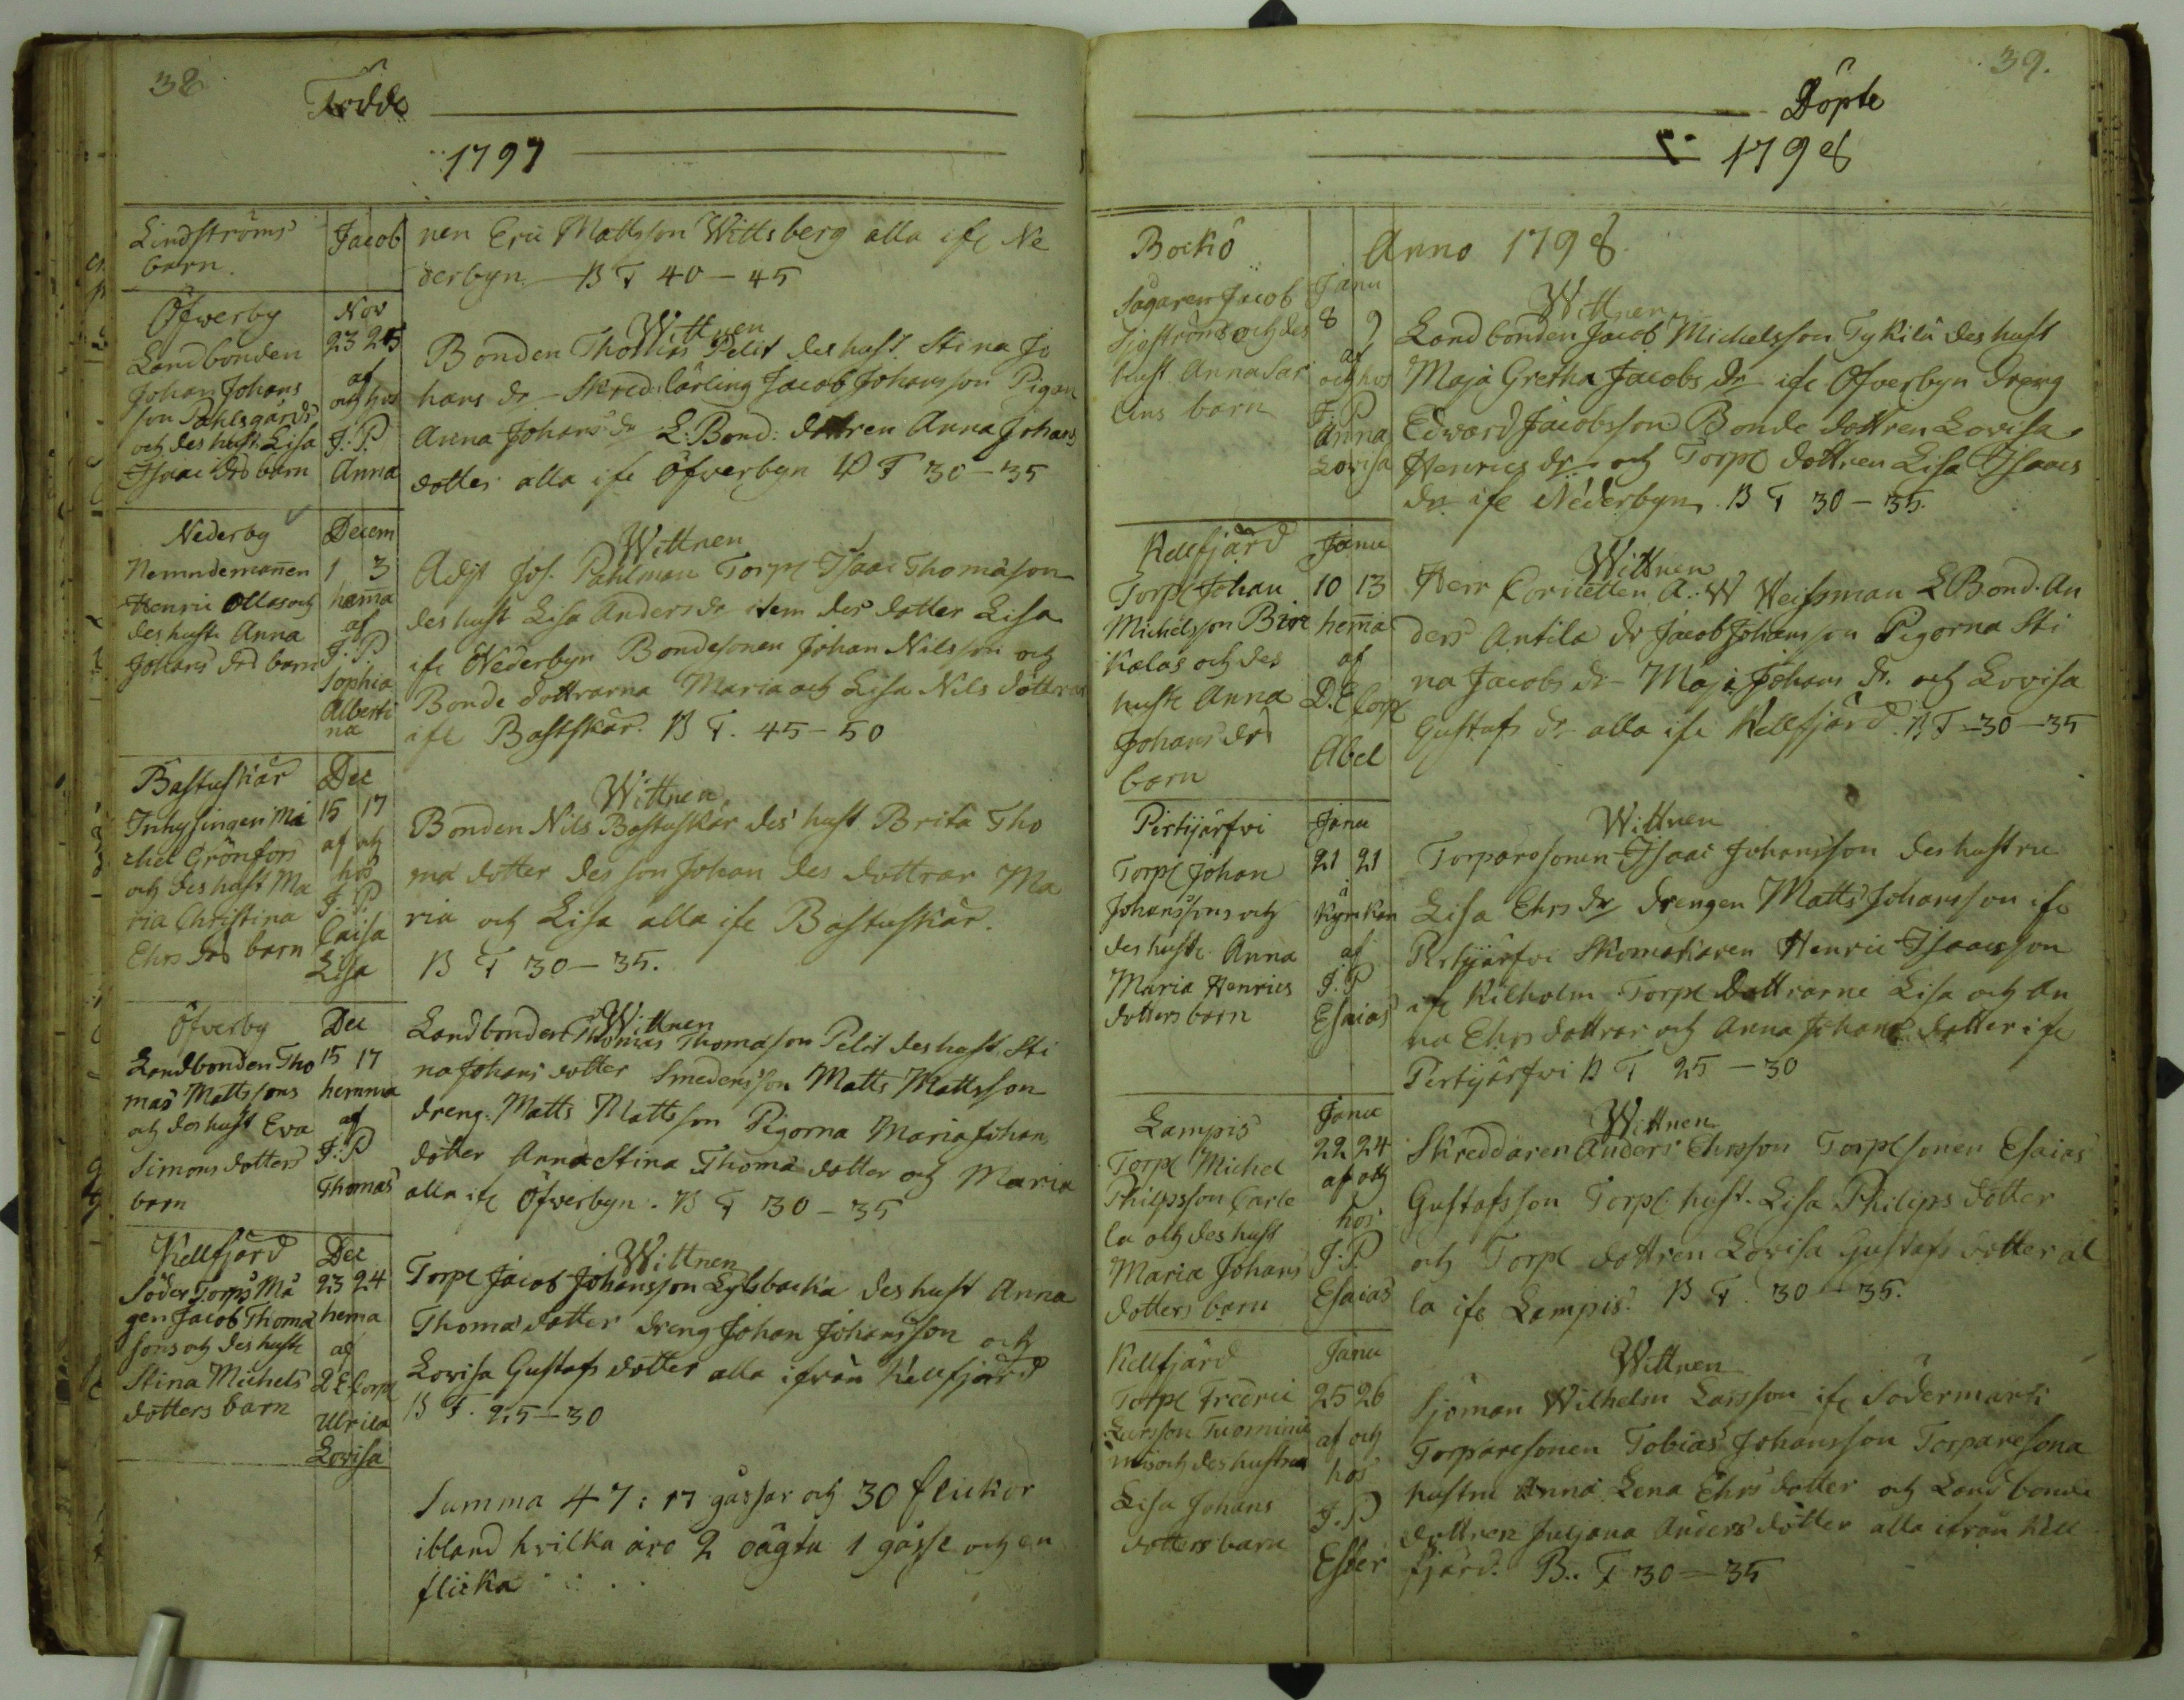 38
Födde
1797
Lindströms
barn.
Jacob
nen Eric Mattsson Wittsberg alla ifr Ne
derbyn. B F 40 - 45
Öfwerby
Landbonden
Johan Johans
son Pahlsgårds
och des hust. Lisa
Isaac drs barn
Nov
23 25
af
och hos
J. P.
Anna
Wittnen
Bonden Thomas Pelit des hust Stina Jo
hans dr - Skred: lärling Jacob Johansson Pigan
Anna Johans dr L. Bond: dottren Anna Johans
dotter alla ifr Öfverbyn B F 30 - 35
Nederby
Nemndemañen
Henric Ollas och
des hustr Anna
Johans drs barn
Decem
1 3
hem̄a
af
J. P
Sophia
Alberti
na
Wittnen
Adjt Jos. Pahlman Torpr Isaac Thomason
des hust Lisa Anders dr item des dotter Lisa
ifr Nederbyn Bondesonen Johan Nilsson och
Bonde dottrarna Maria och Lisa Nils döttrar
ifr Bastskär. B F. 45 - 50
Bastuskär
Inhysingen Mi
chel Grönfors
och des hust Ma
ria Christina
Ehrs drs barn
Dec
15 17
af och
hos
J. P.
Caisa
Lisa
Wittnen
Bonden Nils Bastuskär des hust Brita Tho
ma dotter des son Johan des dottrar Ma
ria och Lisa alla ifr Bastuskär.
B F 30 - 35.
Öfverby
Landbonden Tho
mas Mattsons
och des hust Eva
Simons dotters
barn
Dec
15 17
hemma
af
J. P
Thomas
Wittnen
Landbonden Thomas Thomason Pelit des hust Sti
na Johans dotter Smedensson Matts Mattsson
dreng. Matts Mattsson Pigorna Maria Johans
dotter Anna Stina Thoma dotter och Maria
alla ifr Öfverbyn. B F 30 - 35
Kellfjärd
Söder Torps Må
gen Jacob Thoma
sons och des hustr
Stina Michels
dotters barn
Dec
23 24
hema
af
D E Corpl
Ulrica
Lovisa
Wittnen
Torpr Jacob Johansson Lylsbacka des hust Anna
Thoma dotter dreng Johan Johansson och
Lovisa Gustafs dotter alla ifrån Kellfjärd
B F. 25 - 30
Summa 47: 17 gåssar och 30 flickor
ibland hvilka äro 2 oägta 1 gåsse och en
flicka
39.
Döpte
1798
Bockö
Sågaren Jacob
Sjöströms och des
hust. Anna Sar
lins barn
Janu
8 9
af
och hos
J. P
Anna
Lovisa
Anno 1798
Wittnen
Landbonden Jacob Michelsson Tykilä des hust
Maja Gretha Jacobs dr ifr Öfverbyn dreng
Edward Jacobsson Bonde dottren Lovisa
Henrics dr och Torpr dottren Lisa Isaacs
dr ifr Nederbyn. B F 30 - 35.
Kellfjärd
Torpr Johan
Michelsson Birc
kalas och des
hustr Anna
Johans drs
barn
Janu
10 13
hem̄a
af
D. E Corpl
Abel
Wittnen
Herr Cornetten A. W Weissman L Bond. An
ders Antila dr Jacob Johansson Pigorna Sti
na Jacobs dr - Maja Johans dr. och Lovisa
Gustafs dr alla ifr Kellfjärd. B F - 30 - 35
Pertijärfvi
Torpr Johan
Johanssons och
des hustr. Anna
Maria Henrics
dotters barn
Janu
21 21
i
kyrckan
af
J. P
Esaias
Wittnen
Torparesonen Isaac Johansson des hustru
Lisa Ehrs dr drengen Matts Johansson ifr
Pertijärfvi Skomakaren Henric Isaacsson
ifr Kilholm Torpr Dottrarne Lisa och An
na Ehrs dottrar och Anna Johans dotter ifr
Pertijärfvi B F 25 - 30
Lampis
Torpr Michel
Philpsson Carle
la och des hust
Maria Johans
dotters barn
Janu
22 24
af och
hos
J. P.
Esaias
Wittnen
Skreddaren Anders Ehrsson Torprsonen Esaias
Gustafsson Torpr hust. Lisa Philips dotter
och Torpr dottren Lovisa Gustafs dotter al
la ifr Lampis. B F. 30 - 35.
Kellfjärd
Torpr Fredric
Larsson Tuomini
mis och des hustru
Lisa Johans
dotters barn
Janu
25 26
af och
hos
J. P
Ester
Wittnen
Sjöman Wilhelm Larsson ifr Södermark
Torparesonen Tobias Johansson Torparesona
hustru Anna Lena Ehrs dotter och Landbonde
dottren Juliana Anders dotter alla ifrån Kell
fjärd. B.. F 30 - 35